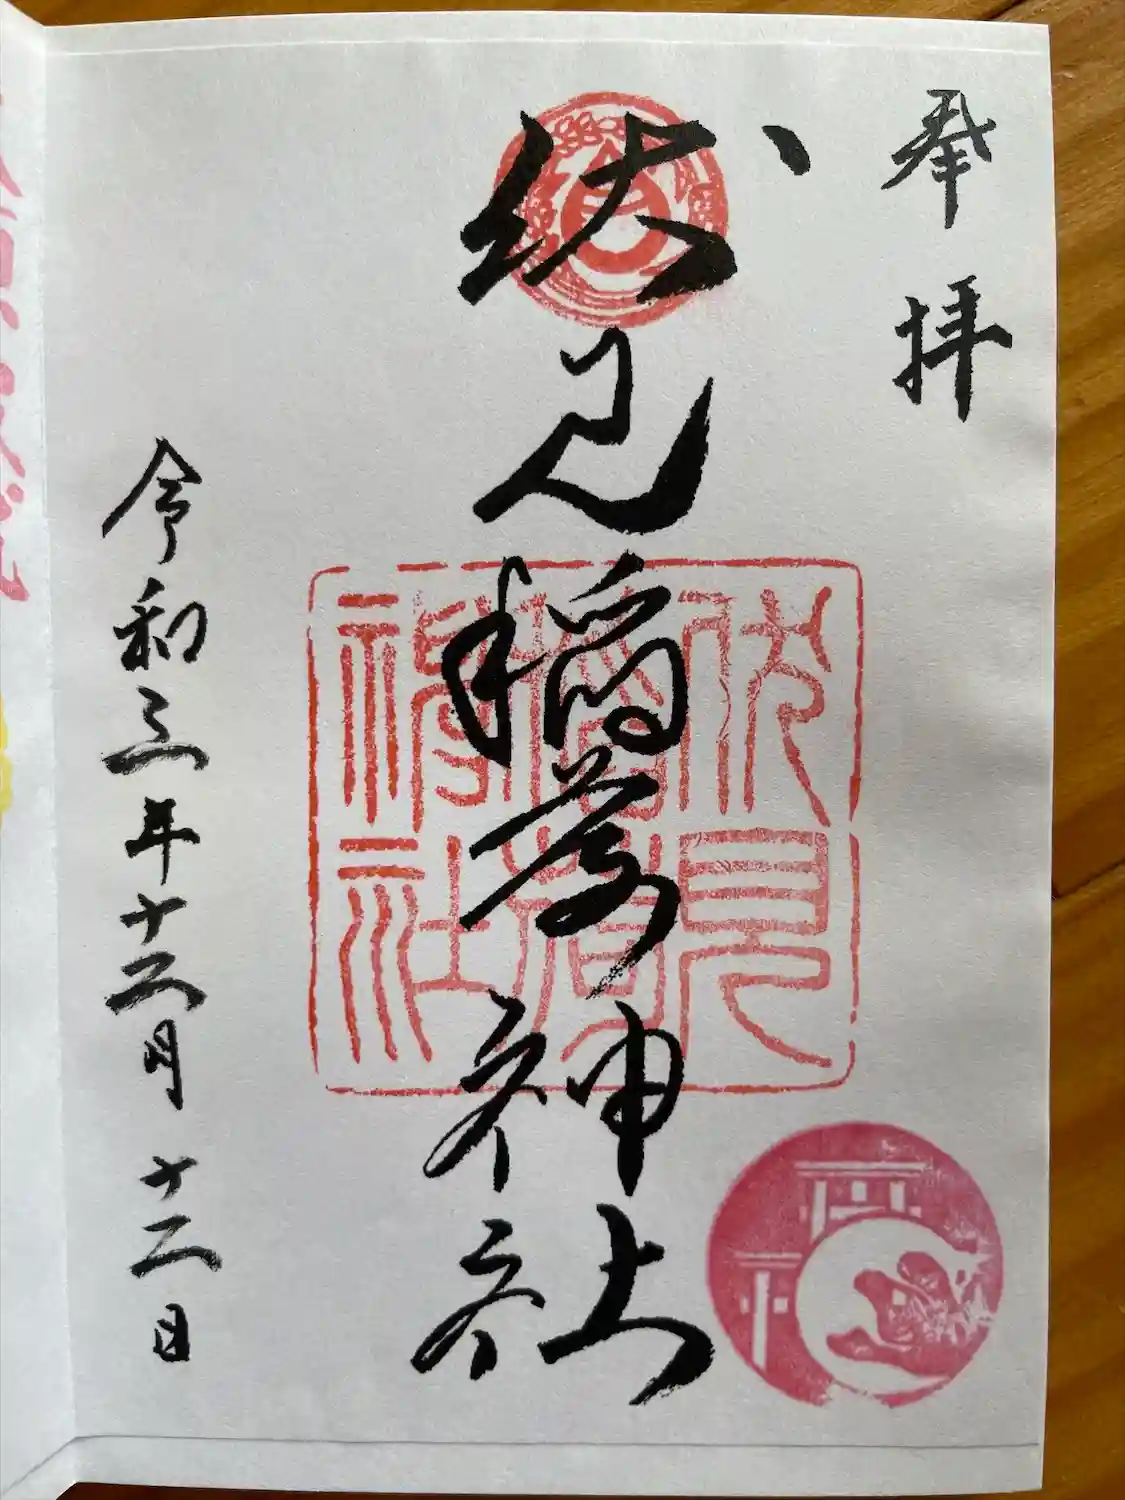 奉拝
伏見稲荷神社
伏見
稲荷
神社
令和三年十二月十二日